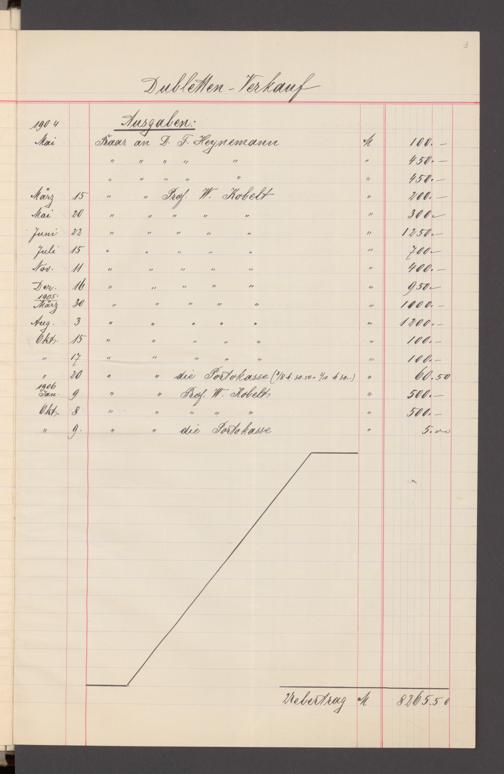 3
Dubletten-Verkauf
1904 Ausgaben:
Mai Baar an D. F. Heynemann M 100.—
" " " " " " 450.—
" " " " " " 450.—
März 15 " " Prof. W. Kobelt " 200.—
Mai 20 " " " " " " 300.—
Juni 22 " " " " " " 1250.—
Juli 15 " " " " " " 700.—
Nov. 11 " " " " " " 400.—
Dez. 16 " " " " " " 950.—
1905
März 30 " " " " " " 1000.—
Aug. 3 " " " " " " 1200.—
Okt. 15 " " " " " " 100.—
" 17 " " " " " " 100.—
" 20 " " die Portokasse " 60.50
1906
Jan. 9 " " Prof. W. Kobelt " 500.—
Okt. 8 " " " " " " 500.—
" 9. " " die Portokasse " 5.—
Uebertrag M 8265.50